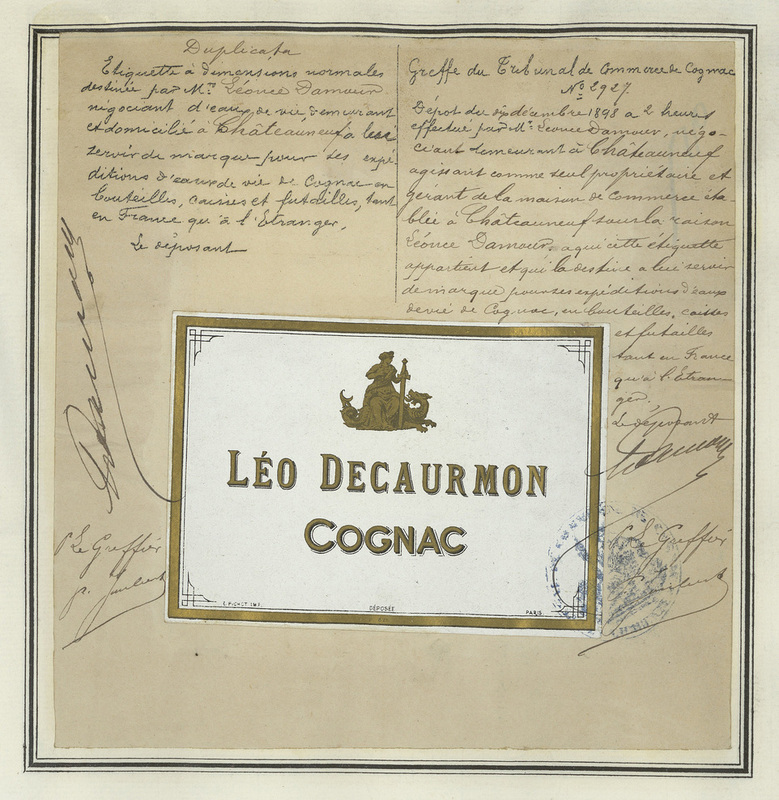 Duplicata
Etiquette à dimensions normales
destinée par Mr. Léonce Damour
négociant d'eaux de vie demeurant
et domicilié à Châteauneuf a lui
servir de marque pour ses expé-
ditions d'eaux de vie de Cognac en
bouteilles, caisses et futailles, tant
en France qu'à l'Etranger.
Le déposant
Greffe du Tribunal de Commerce de Cognac
No. 2927.
Dépot du dix décembre 1898 a 2 heures
effectué par Mr. Léonce Damour, négo-
ciant demeurant à Châteauneuf
agissant comme seul propriétaire et
gérant de la maison de commerce éta-
blie à Châteauneuf sous la raison
Léonce Damour, a qui cette étiquette
appartient et qui la destine a lui servir
de marque pour ses expéditions d'eaux
de vie de Cognac, en bouteilles, caisses
et futailles
tant en France
qu'à l'Etran-
ger.
Le déposant
LÉO DECAURMON
COGNAC
E. PICHOT IMP.
DÉPOSÉE
PARIS
p Le Greffier
p Le Greffier